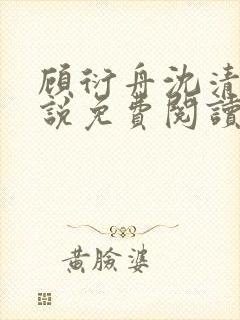 顾衍舟沈清
說免費閱讀
黃臉婆